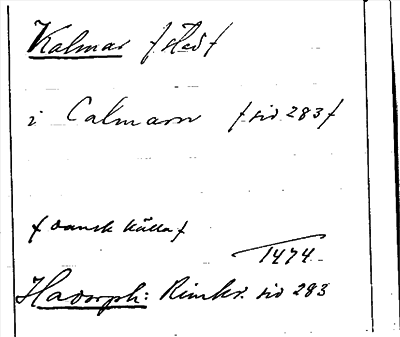 Kalmar /stad/
i Calmarn /sid 283/
/dansk källa/
1474
Hadorph: Rimkr. sid 283